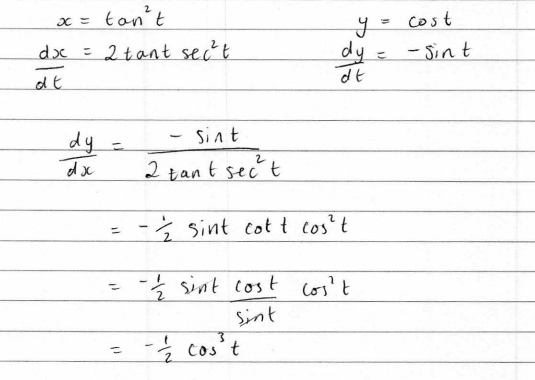 x = tan²t    y = cost
dx/dt = 2tant sec²t    dy/dt = -sint
dy/dx = - sint / 2 tant sec²t
= -½ sint cot t cos²t
= -½ sint cost/sint cos²t
= -½ cos³t